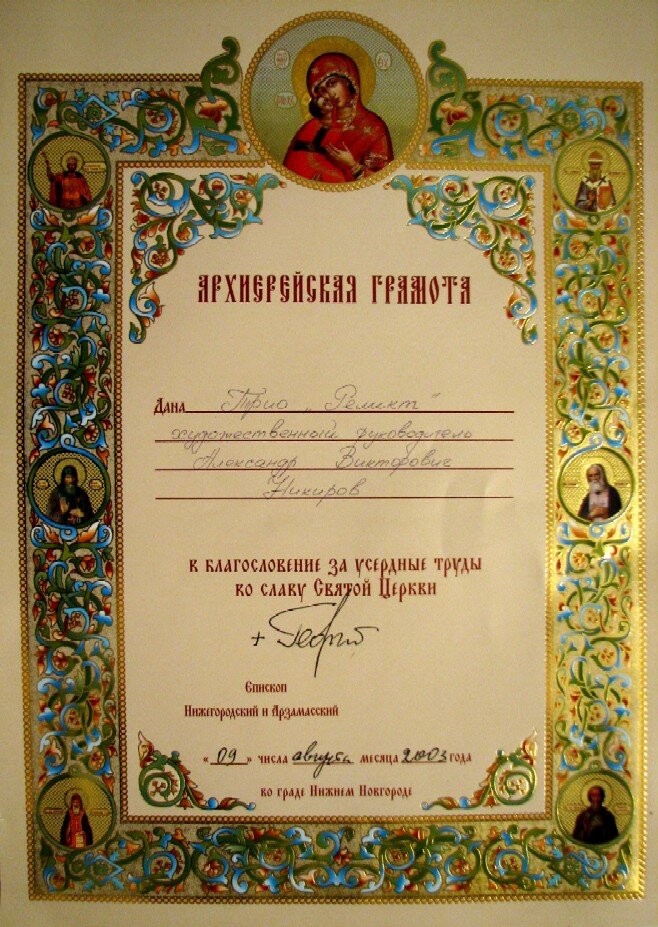 АРХИЕРЕЙСКАЯ ГРАМОТА
Дана Трио „Реликт"
художественный руководитель
Александр Викторович
Никиров
в благословение за усердные труды
во славу Святой Церкви
+ Георгий
Епископ
Нижегородский и Арзамасский
« 09 » числа августа месяца 2003 года
во граде Нижнем Новгороде